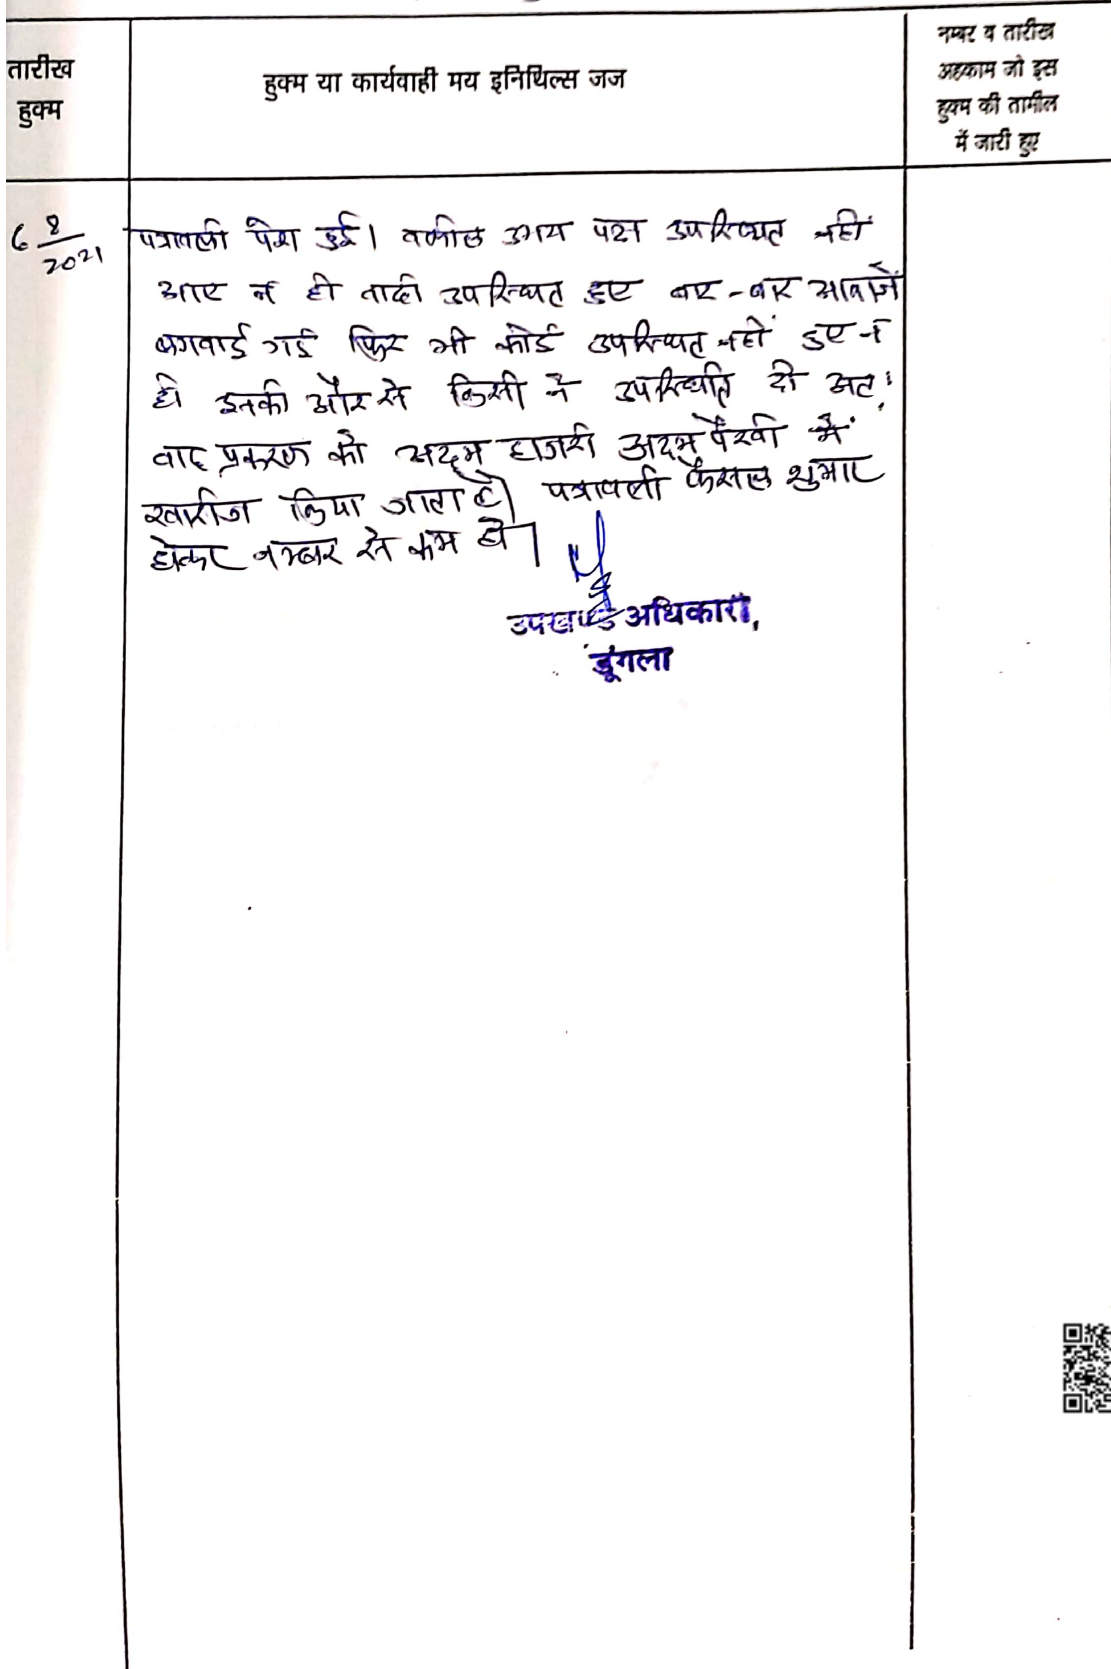 तारीख
हुक्म
हुक्म या कार्यवाही मय इनिथिल्स जज
नम्बर व तारीख
अहकाम जो इस
हुक्म की तामील
में जारी हुए
6 8/2021
पत्रावली पेश हुई। वकील उभय पक्ष उपस्थित नहीं
आए न ही वादी उपस्थित हुए बार-बार आवाजें
लगवाई गई फिर भी कोई उपस्थित नहीं हुए न
ही इनकी और से किसी ने उपस्थिति दी अतः
वाद प्रकरण को अदम हाजरी अदम पैरवी में
खारीज किया जाता है। पत्रावली फैसल शुमार
होकर नम्बर से कम हो।
उपखण्ड अधिकारी,
डूंगला